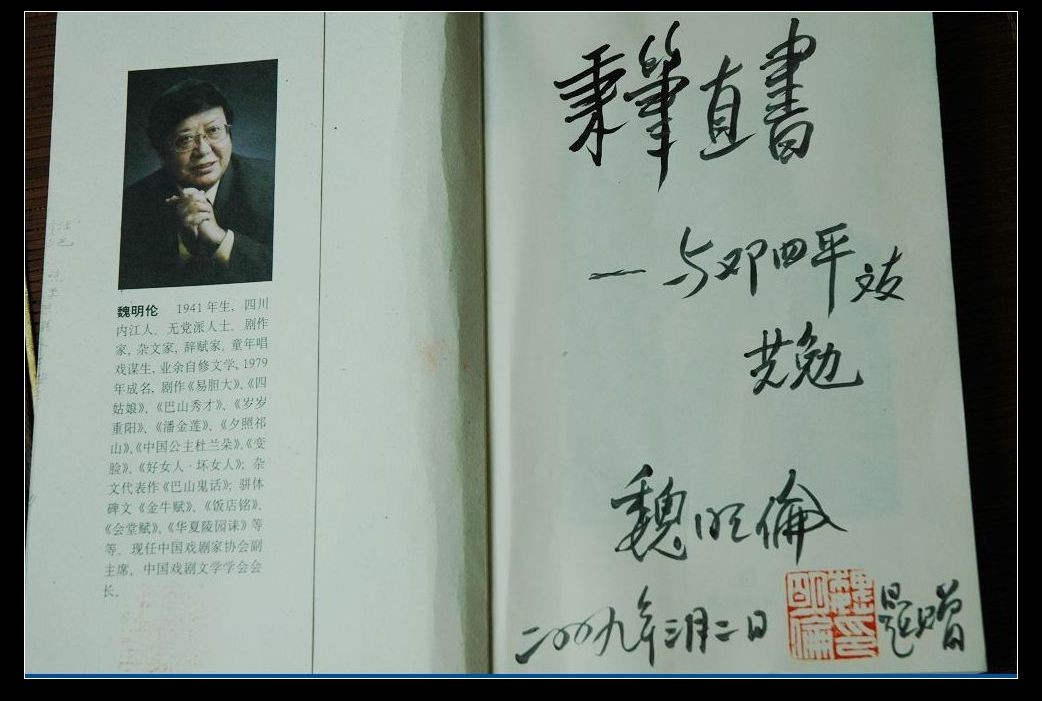 魏明伦 1941年生，四川
内江人，无党派人士。剧作
家，杂文家，辞赋家。童年唱
戏谋生，业余自修文学，1979
年成名，剧作《易胆大》、《四
姑娘》、《巴山秀才》、《岁岁
重阳》、《潘金莲》、《夕照祁
山》、《中国公主杜兰朵》、《变
脸》、《好女人·坏女人》；杂
文代表作《巴山鬼话》；骈体
碑文《金牛赋》、《饭店铭》、
《会堂赋》、《华夏陵园诔》等
等。现任中国戏剧家协会副
主席，中国戏剧文学学会会
长。
秉筆直書
—与邓四平文友
共勉
魏明倫
二00九年三月二日
魏明倫印
题赠